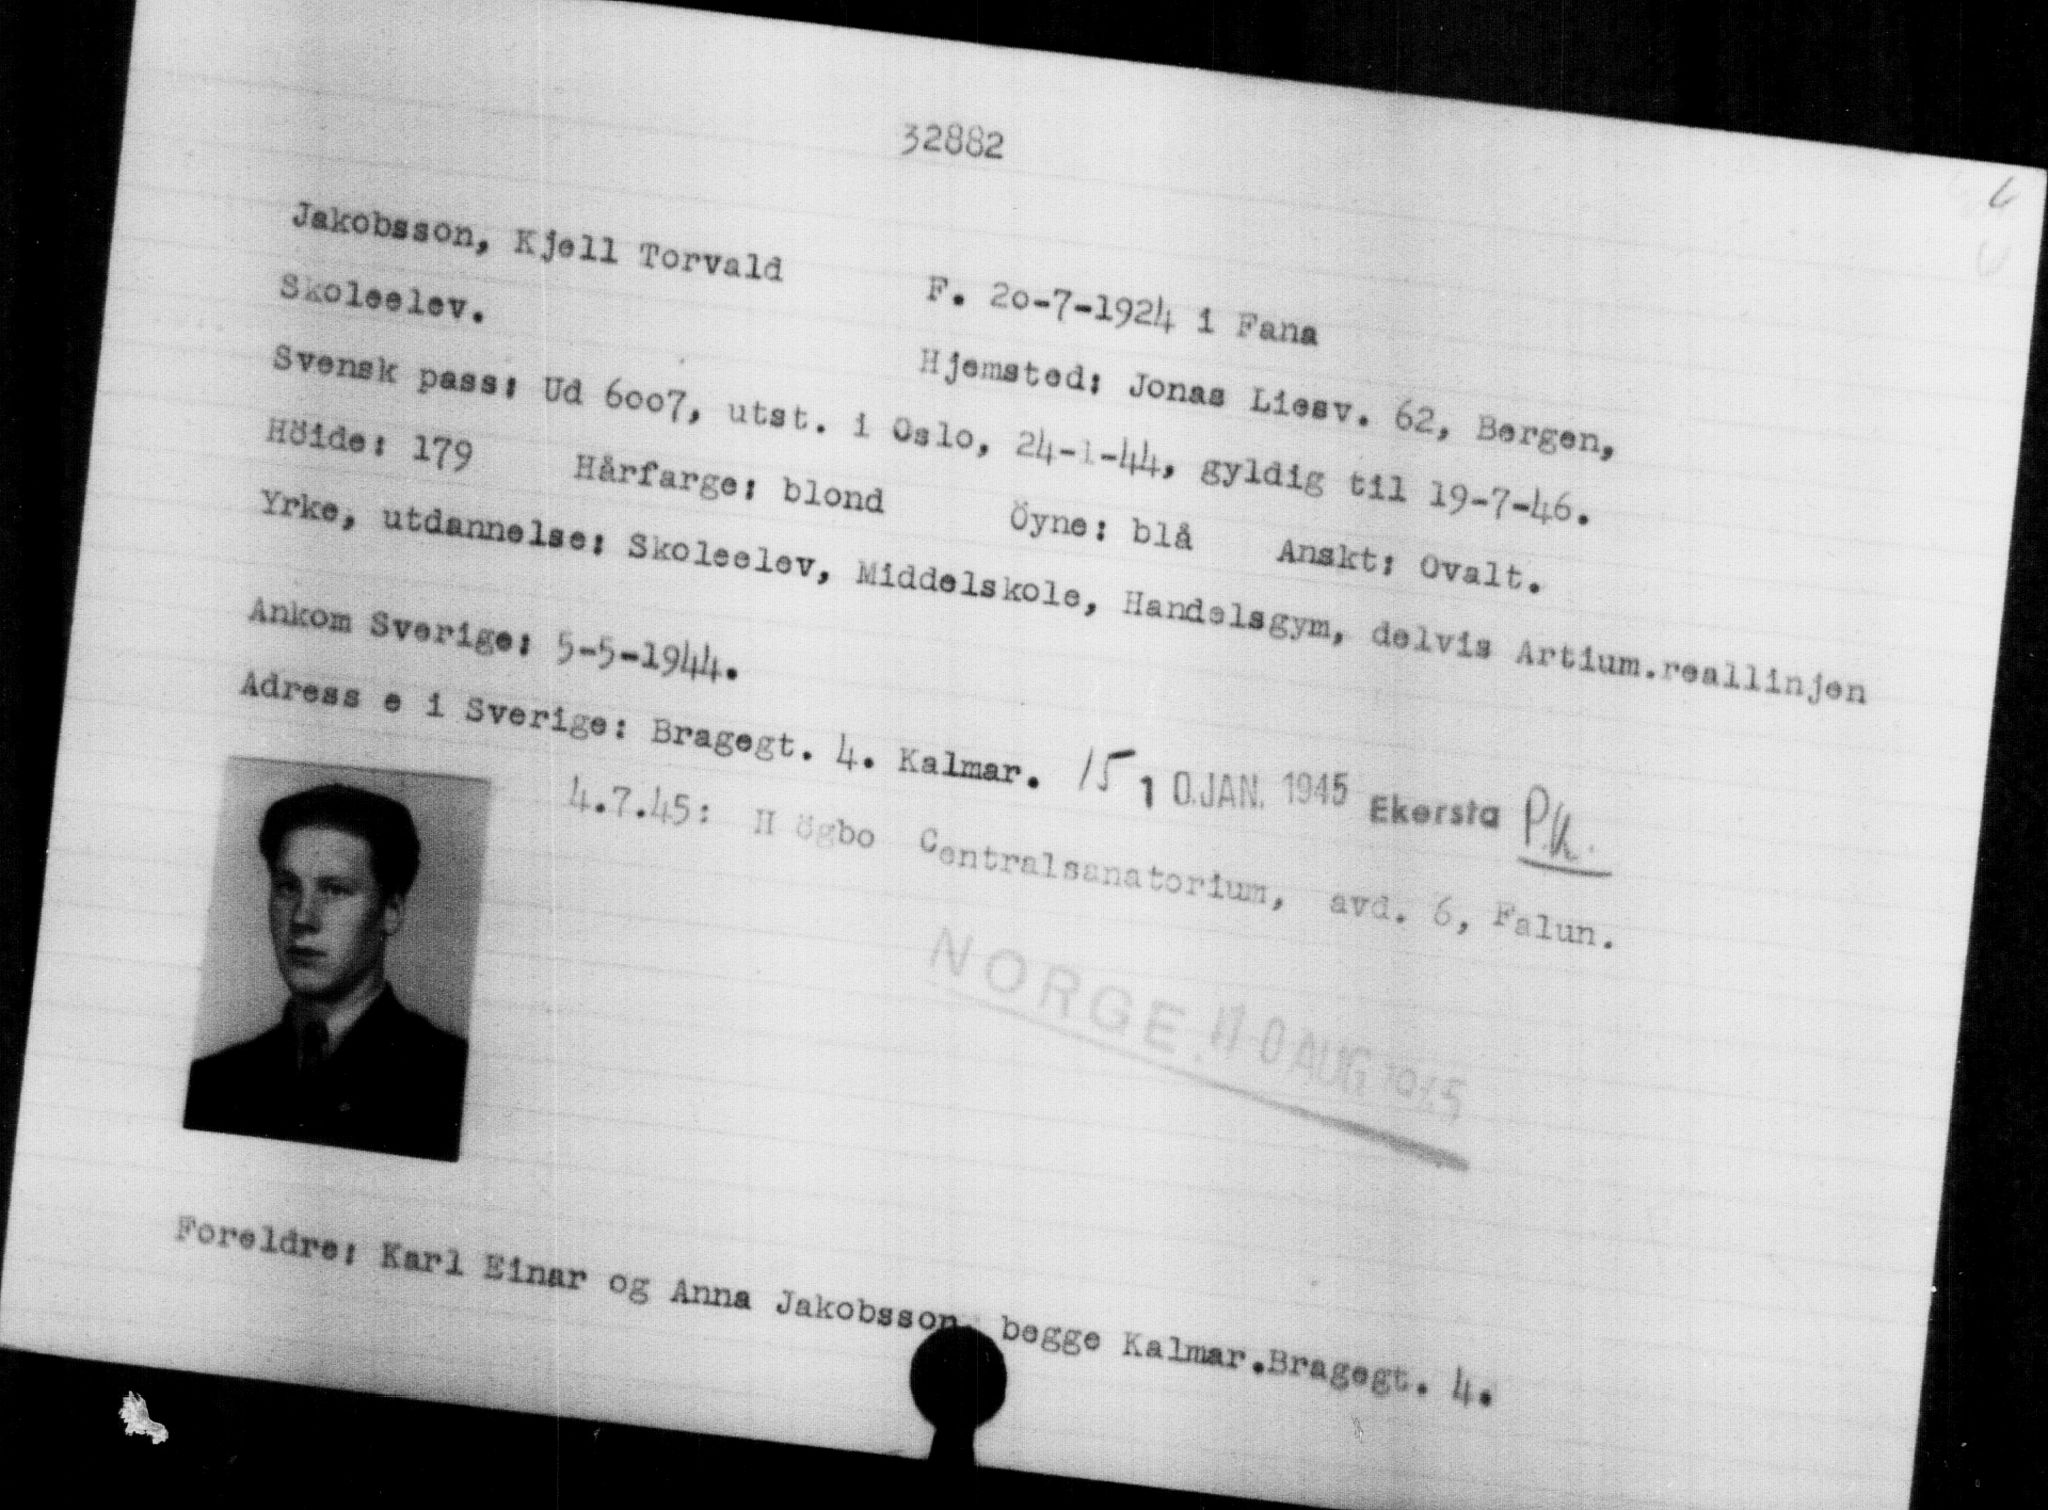 32882
Jakobsson, Kjell Torvald F. 2o-7-1924 i Fana
Skoleelev. Hjemsted: Jonas Liesv. 62, Bergen,
Svensk pass: Ud 6oo7, utst. i Oslo, 24-1-44, gyldig til 19-7-46.
Höide: 179 Hårfarge: blond Öyne: blå Anskt: Ovalt.
Yrke, utdannelse: Skoleelev, Middelskole, Handelsgym, delvis Artium.reallinjen
Ankom Sverige: 5-5-1944.
Adress e i Sverige: Bragegt. 4. Kalmar. 15 1 0.JAN. 1945 Ekersta P.K.
4.7.45: H ögbo Centralsanatorium, avd. 6, Falun.
NORGE. AUG 1945
Foreldre: Karl Einar og Anna Jakobsson, begge Kalmar.Bragegt. 4.